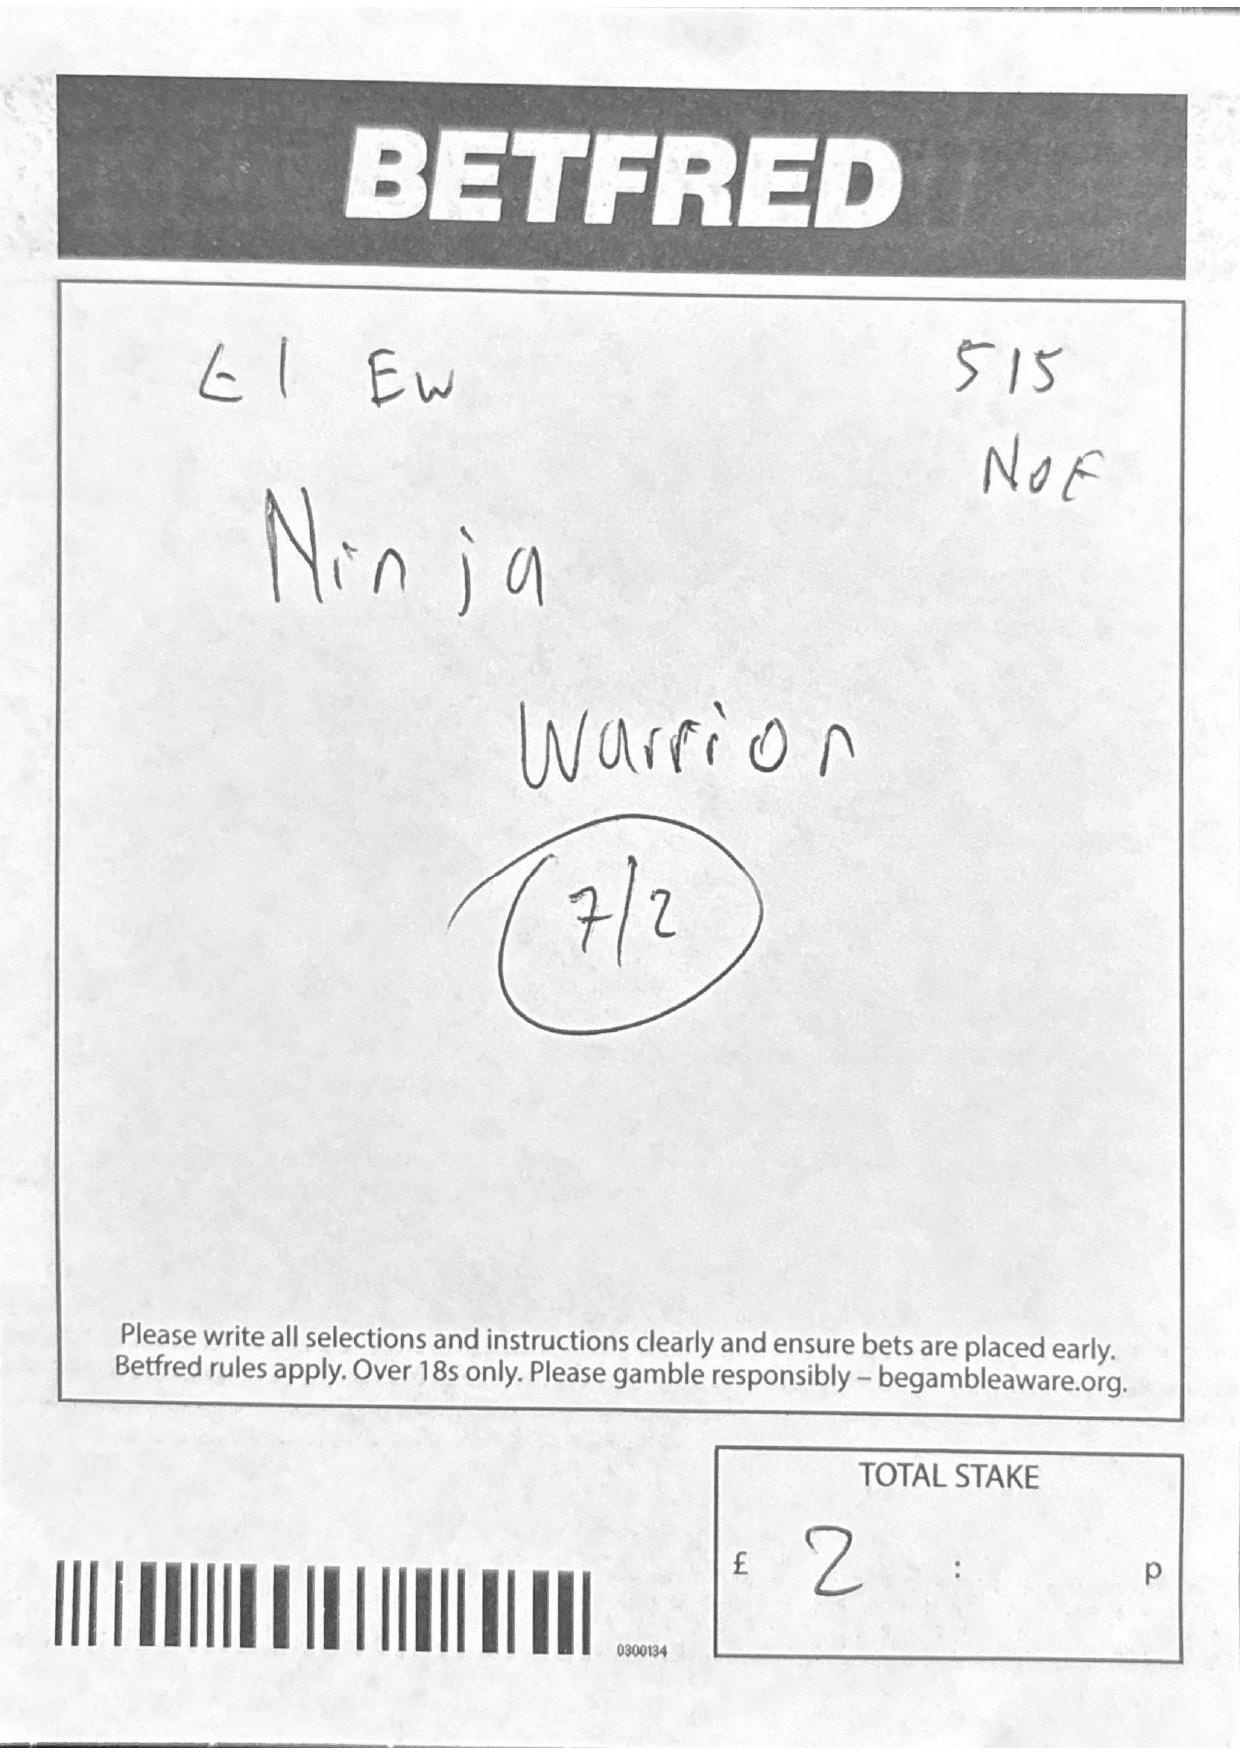 BETFRED
£1 EW 515
NOE
Ninja
Warrior
7/2
Please write all selections and instructions clearly and ensure bets are placed early.
Betfred rules apply. Over 18s only. Please gamble responsibly – begambleaware.org.
TOTAL STAKE
£ 2 : p
0300134